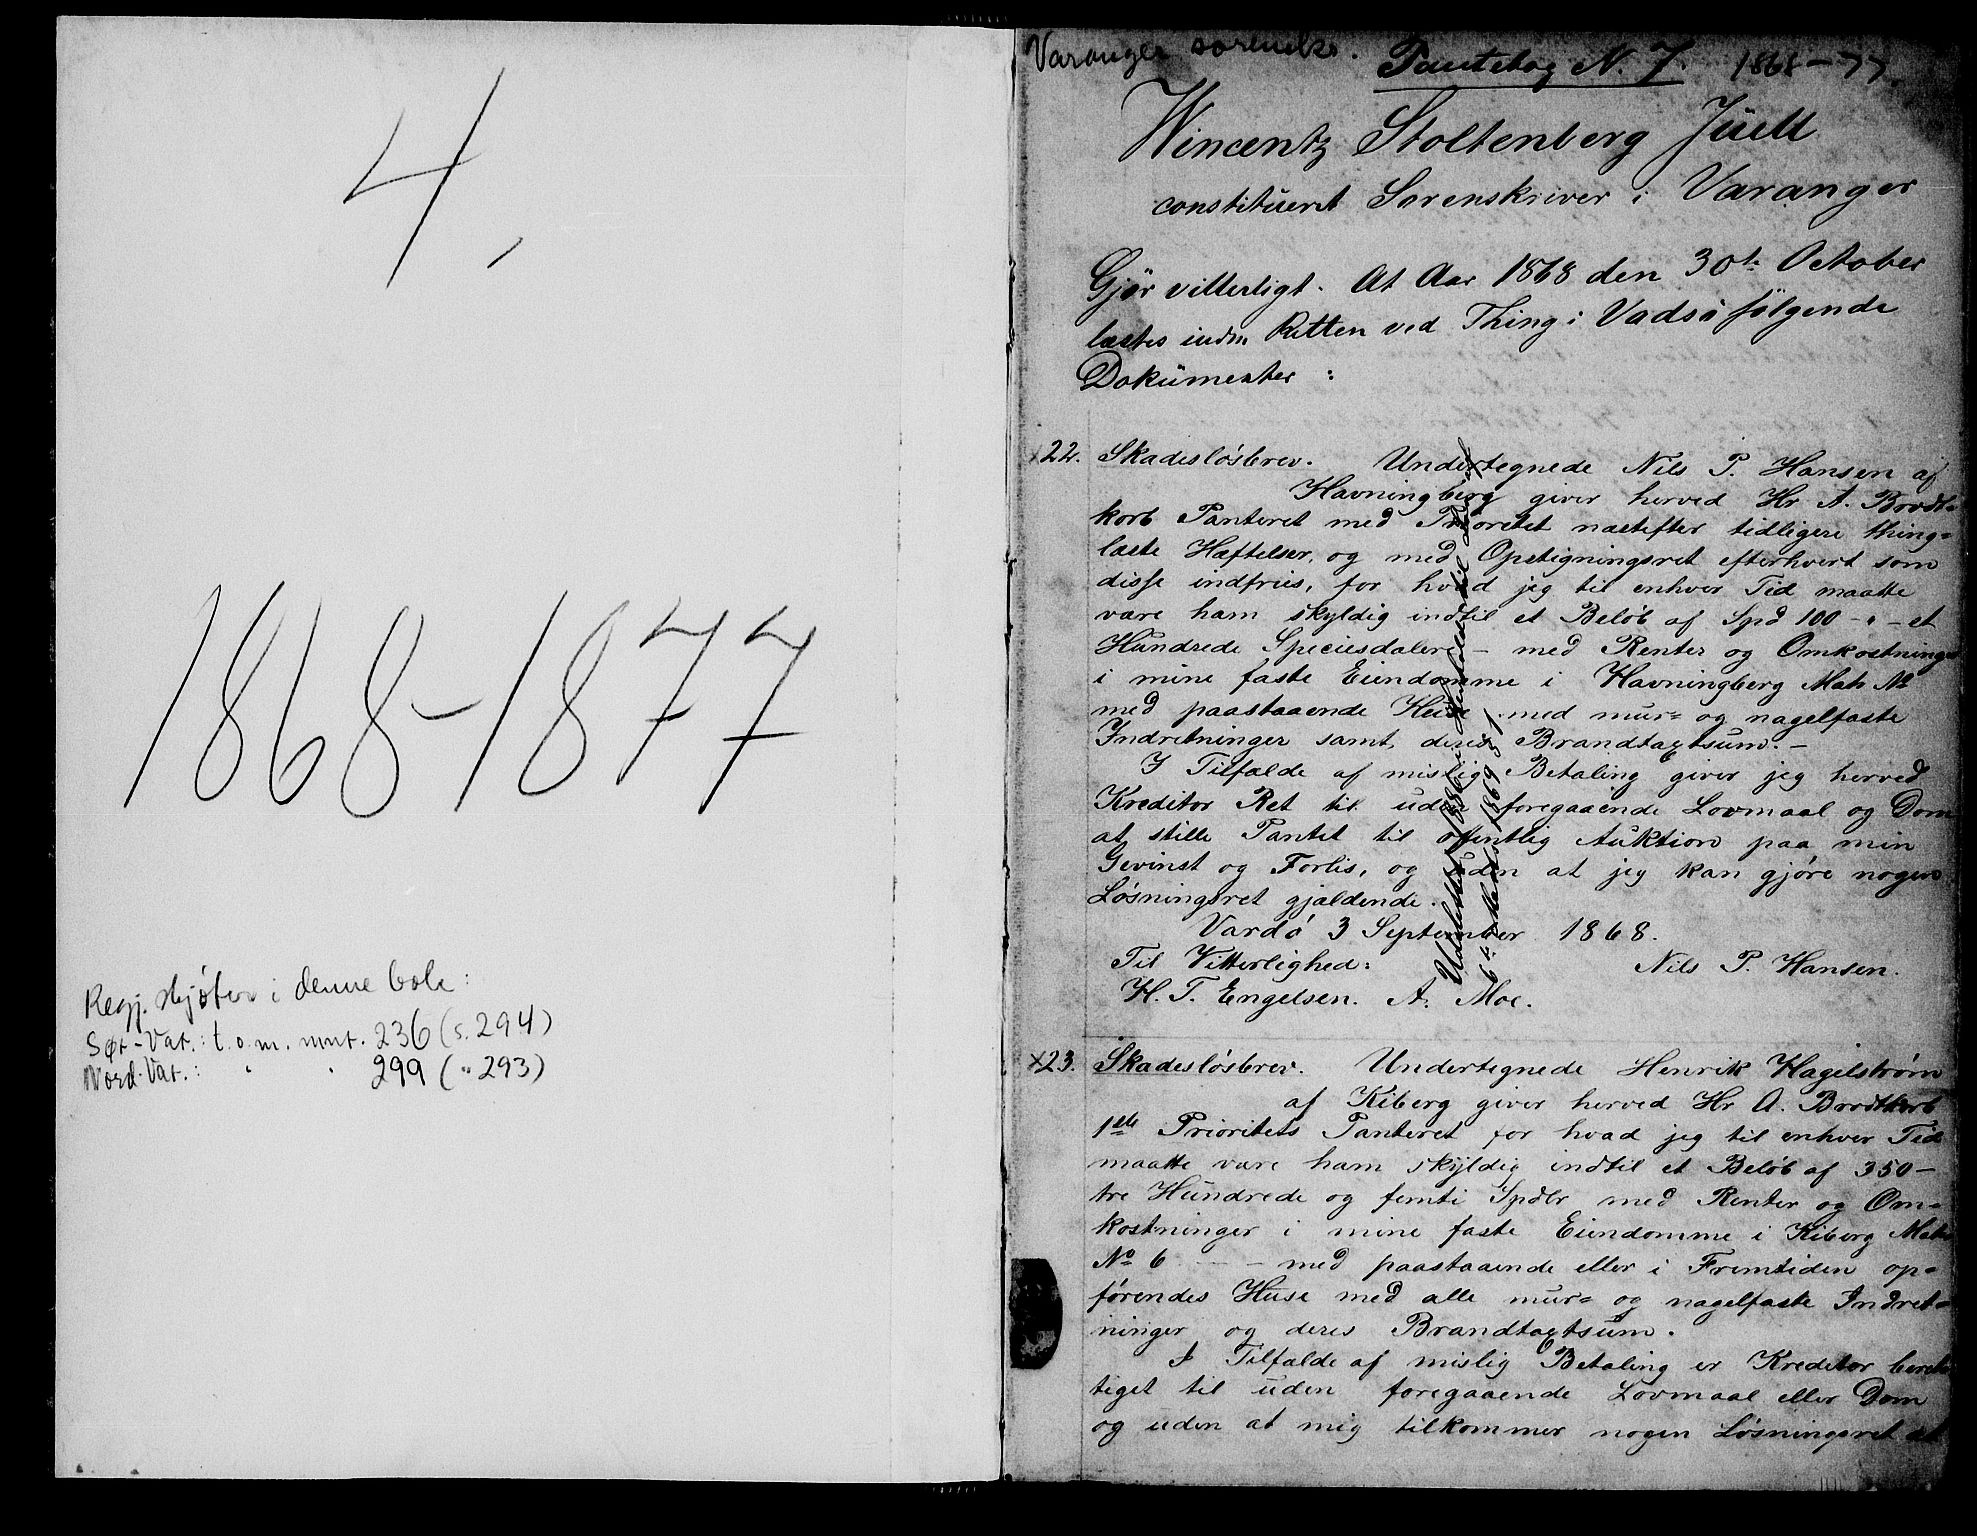 4,
1868-1877
Regj. skjøter i denne bok:
Sør-Var.: t.o.m. mnt. 236 (s. 294)
Nord-Var.: " " 299 (" 293)
Varanger sorenskr.
Pantebog N. 7. 1868-77.
Wincentz Stoltenberg Jüell
constitueret Sorenskriver i Varanger
Gjør vitterligt. At Aar 1868 den 30te October
læstes inden Retten ved Thing i Vadsö følgende
Dokümenter :
x22. Skadesløsbrev. Undertegnede Nils P. Hansen af
Havningberg giver herved Hr A. Brodt=
korb Panteret med Prioretet næstefter tidligere thing=
læste Hæftelser, og med Opstigningsret efterhvert som
disse indfries, for hvad jeg til enhver Tid maatte
være ham skyldig indtil et Beløb af Spd 100 - " - et
Hundrede Speciesdalere - med Renter og Omkostninger
i mine faste Eiendomme i Havningberg Matr No
med paastaaende Huse med mur= og nagelfaste
Indretninger samt deres Brandtaxtsum. -
I Tilfælde af mislig Betaling giver jeg herved
Kreditor Ret til uden foregaaende Lovmaal og Dom
at stille Pantet til offentlig Auktion paa min
Gevinst og Forlis, og uden at jeg kan gjøre nogen
Løsningsret gjældende.
Vardö 3 September 1868.
Til Vitterlighed: Nils P. Hansen.
H. T. Engelsen. A. Moe.
x23. Skadesløsbrev. Undertegnede Henrik Hagelstrøm
af Kiberg giver herved Hr A. Brodtkorb
1ste Prioritets Panteret for hvad jeg til enhver Tid
maatte være ham skyldig indtil et Beløb af 350 -
tre Hundrede og femti Spdlr med Renter og Om=
kostninger i mine faste Eiendomme i Kiberg Matr
No 6 - - med paastaaende eller i Fremtiden op=
førendes Huse med alle mur= og nagelfaste Indret=
ninger og deres Brandtaxtsum.
I Tilfælde af mislig Betaling er Kreditor beret
tiget til uden foregaaende Lovmaal eller Dom
og uden at mig tilkommer nogen Løsningsret at